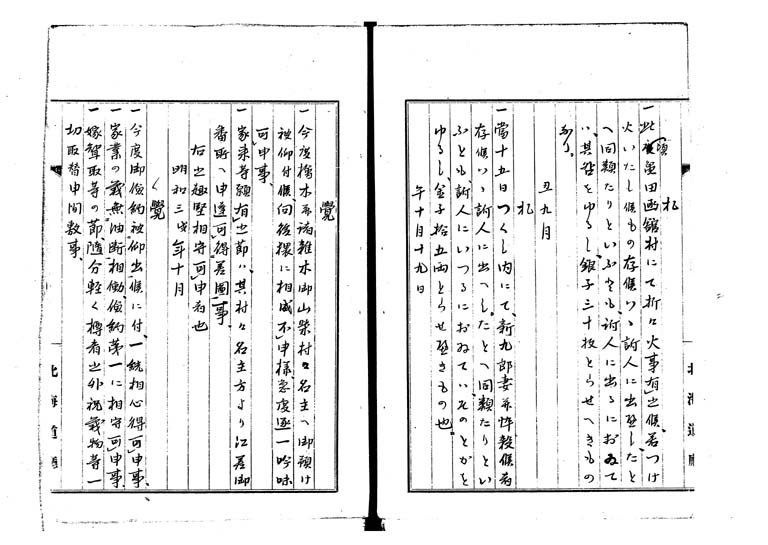 札
一此頃亀田函館村にて折々火事有之候、若つけ
火いたし候もの存候ハヽ訴人に出へし、たと
へ同類たりといふとも、訴人に出るにおゐて
ハ、其咎をゆるし、銀子三十枚とらせへきもの
なり。
丑九月
札
一當十五日つくし内にて、新九郎妻并忰殺候者
存候ハヽ訴人に出へし。たとへ同類たりとい
ふとも、訴人にいつるにおゐてハ、そのとかを
ゆるし、金子拾五両とらせ可きもの也。
午十月十九日
覺
一今度檜木并諸雜木御山柴村々名主へ御預け
被仰付候、向後猥に相成不申様、急度逐一吟味
可申事。
一家来等願有之節ハ、其村々名主方より江差御
番所へ申達可得差圖事。
右之趣堅相守可申者也
明和三戌年十月
覺
一今度御儉約被仰出候に付、一統相心得可申事。
一家業の義無油断相働、儉約第一に相守可申事。
一嫁聟取等の節、隨分軽く樽肴之外祝義物等一
切取替申間敷事。
北海道廳
北海道廳